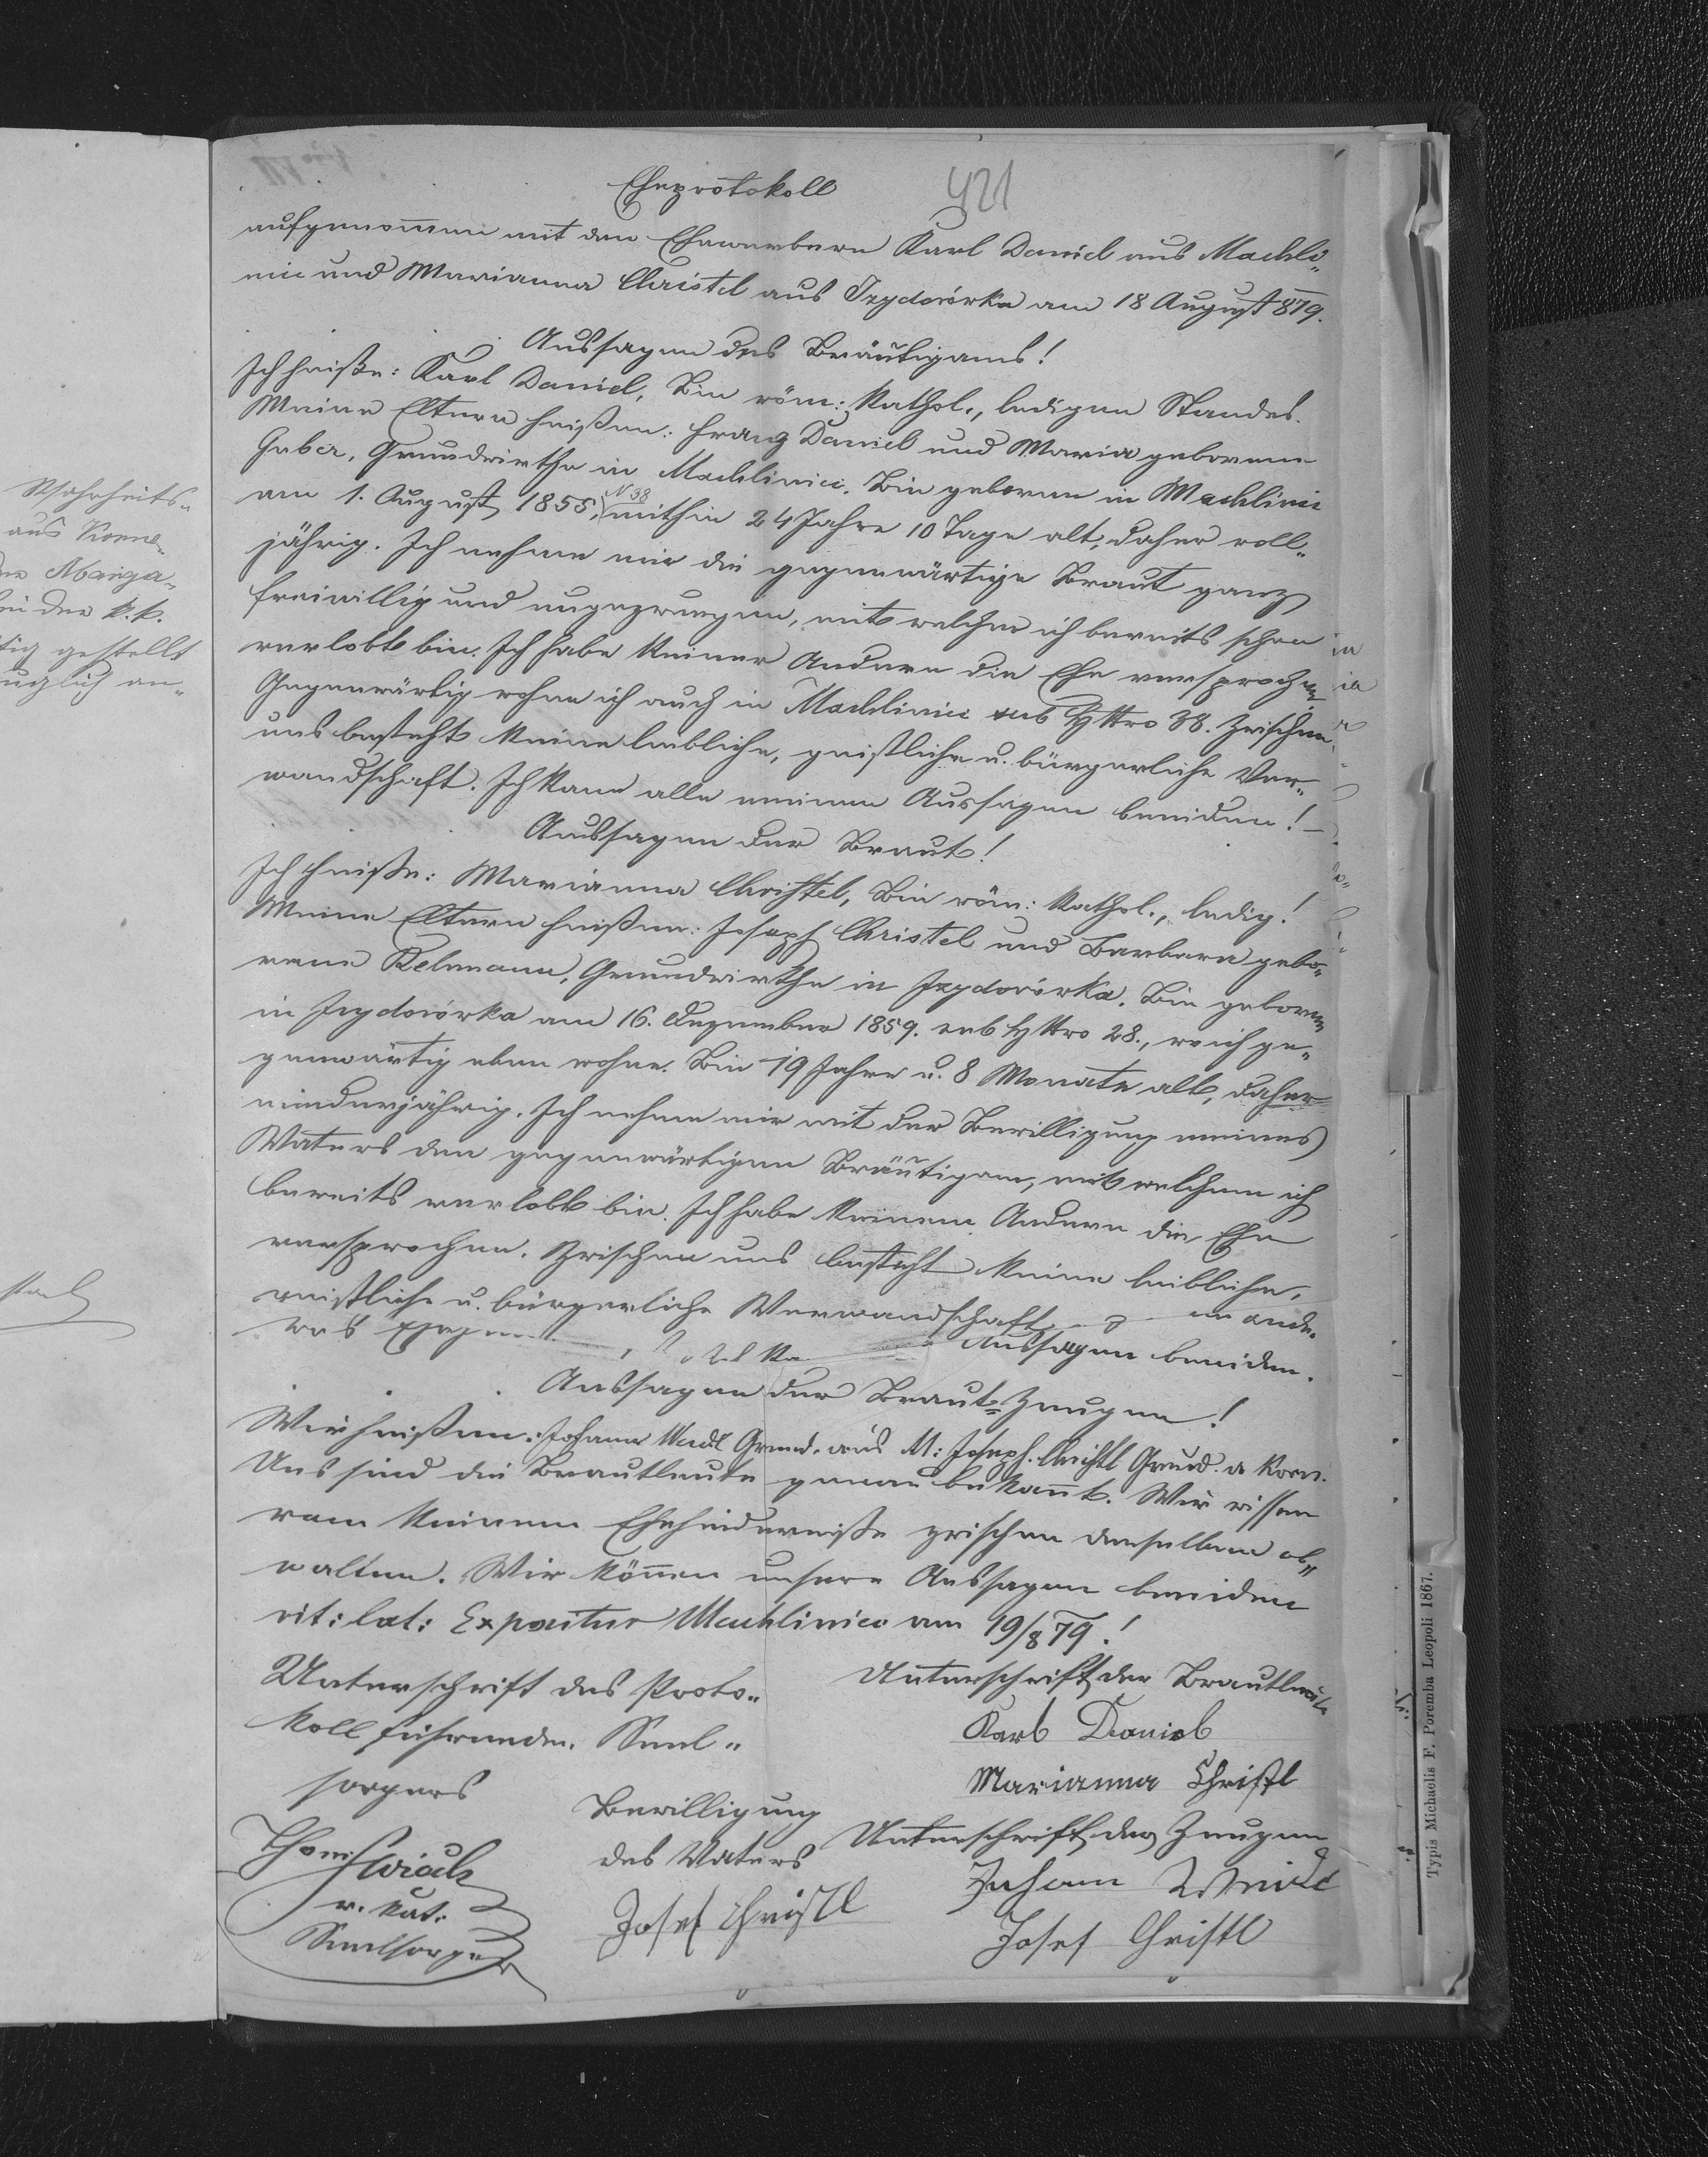 Eheprotokoll
421
aufgenommen mit den Ehewerbern Karl Daniel aus Machli„
nic und Marianna Christel aus Izydorówka am 18 August 879.
Aussagen des Bräutigams!
Ich heiße: Karl Daniel, Bin röm: Kathol., ledigen Standes.
Meine Eltern heißen: Franz Daniel und Maria geborene
Huber, Grundwirthe in Machlinici. Bin geboren in Machlinic
am 1. August 1855, N 38 mithin 24 Jahre 10 Tage alt, daher voll„
jährig. Ich nehme mir die gegenwärtige Braut ganz
freiwillig und ungezwungen, mit welcher ich bereits schon
verlobt bin. Ich habe Keiner Andern die Ehe versprochen
Gegenwärtig wohne ich auch in Machlinici sub Httro 38. Zwischen
uns besteht Keine leibliche, geistliche u. bürgerliche Ver„
wandschaft. Ich kann alle meinen Aussagen beeiden! –
Aussagen der Braut!
Ich heiße: Marianna Christel, Bin röm: Kathol., ledig!
Meine Eltern heißen: Joseph Christel und Barbara gebo„
rene Rehmann, Grundwirthe in Izydorówka. Bin geboren
in Izydorówka am 16. Dezember 1859. sub Httro 28., wo ich ge„
genwärtig eben wohne. Bin 19 Jahre u. 8 Monate alt, daher
minderjährig. Ich nehme mir mit der Bewilligung meines
Vaters den gegenwärtigen Bräutigam, mit welchem ich
bereits verlobt bin. Ich habe Keinem Andern die Ehe
versprochen. Zwischen uns besteht Keine leibliche,
geistliche u. bürgerliche Verwandschaft
Aussagen beeiden.
Aussagen der Braut=Zeugen!
Wir heißen: Johann Weidl Grund. aus M: Joseph. Christl Grund. a Korn.
Uns sind die Brautleute genau bekannt. Wir wissen
von Keinem Ehehinderniße zwischen denselben ob„
walten. Wir können unsere Aussagen beeiden
rit: lat: Expositur Machlinice am 19/8 79.!
Unterschrift des Proto„
koll führenden Seel„
sorgers
Thom
r. kat.
Seelsorger
Bewilligung
des Vaters
Josef Christl
Unterschrift der Brautleute
Karl Daniel
Marianna Christl
Unterschrift der Zeugen
Johann Weidl
Josef Christl
Wahrheits„
aus Korne„
der k.k.
tig gestellt
uglich an„
Typis Michaelis F. Poremba Leopoli 1867.